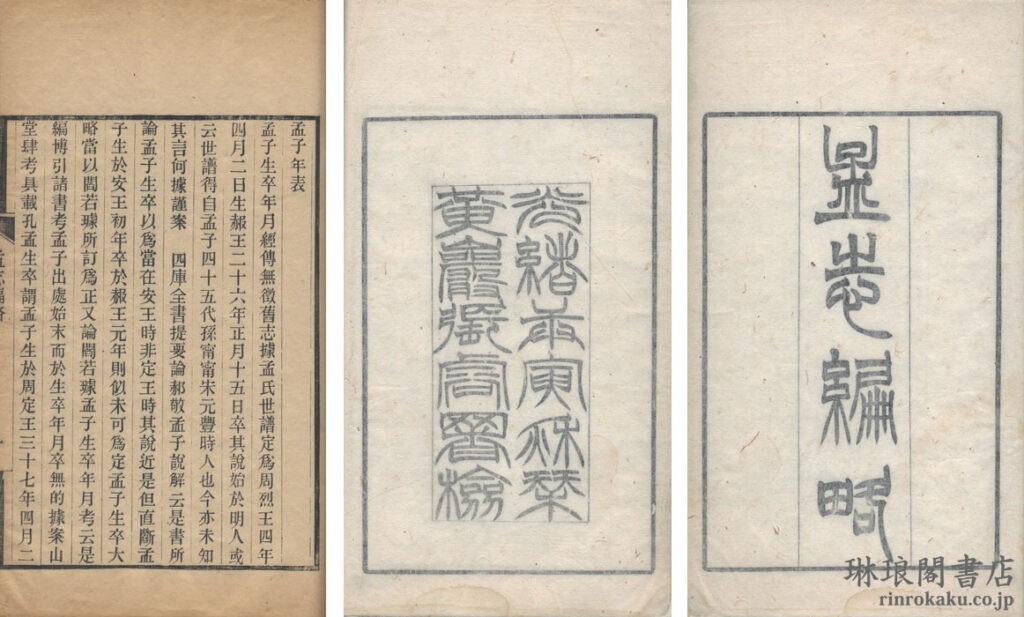 孟志編略
光緒庚寅秌栞
黃巖張檢
孟子年表
孟子生卒年月經傳無徵舊志據孟氏世譜定爲周烈王四年
四月二日生赧王二十六年正月十五日卒其說始於明人或
云世譜得自孟子四十五代孫甯甯宋元豐時人也今亦未知
其言何據謹案　四庫全書提要論郝敬孟子說解云是書所
論孟子生卒以爲當在安王時非定王時其說近是但直斷孟
子生於安王初年卒於赧王元年則似未可爲定孟子生卒大
略當以閻若璩所訂爲正又論閻若璩孟子生卒年月考云是
編博引諸書考孟子出處始末而於生卒年月卒無的據案山
堂肆考具載孔孟生卒謂孟子生於周定王三十七年四月二
琳琅閣書店
rinrokaku.co.jp